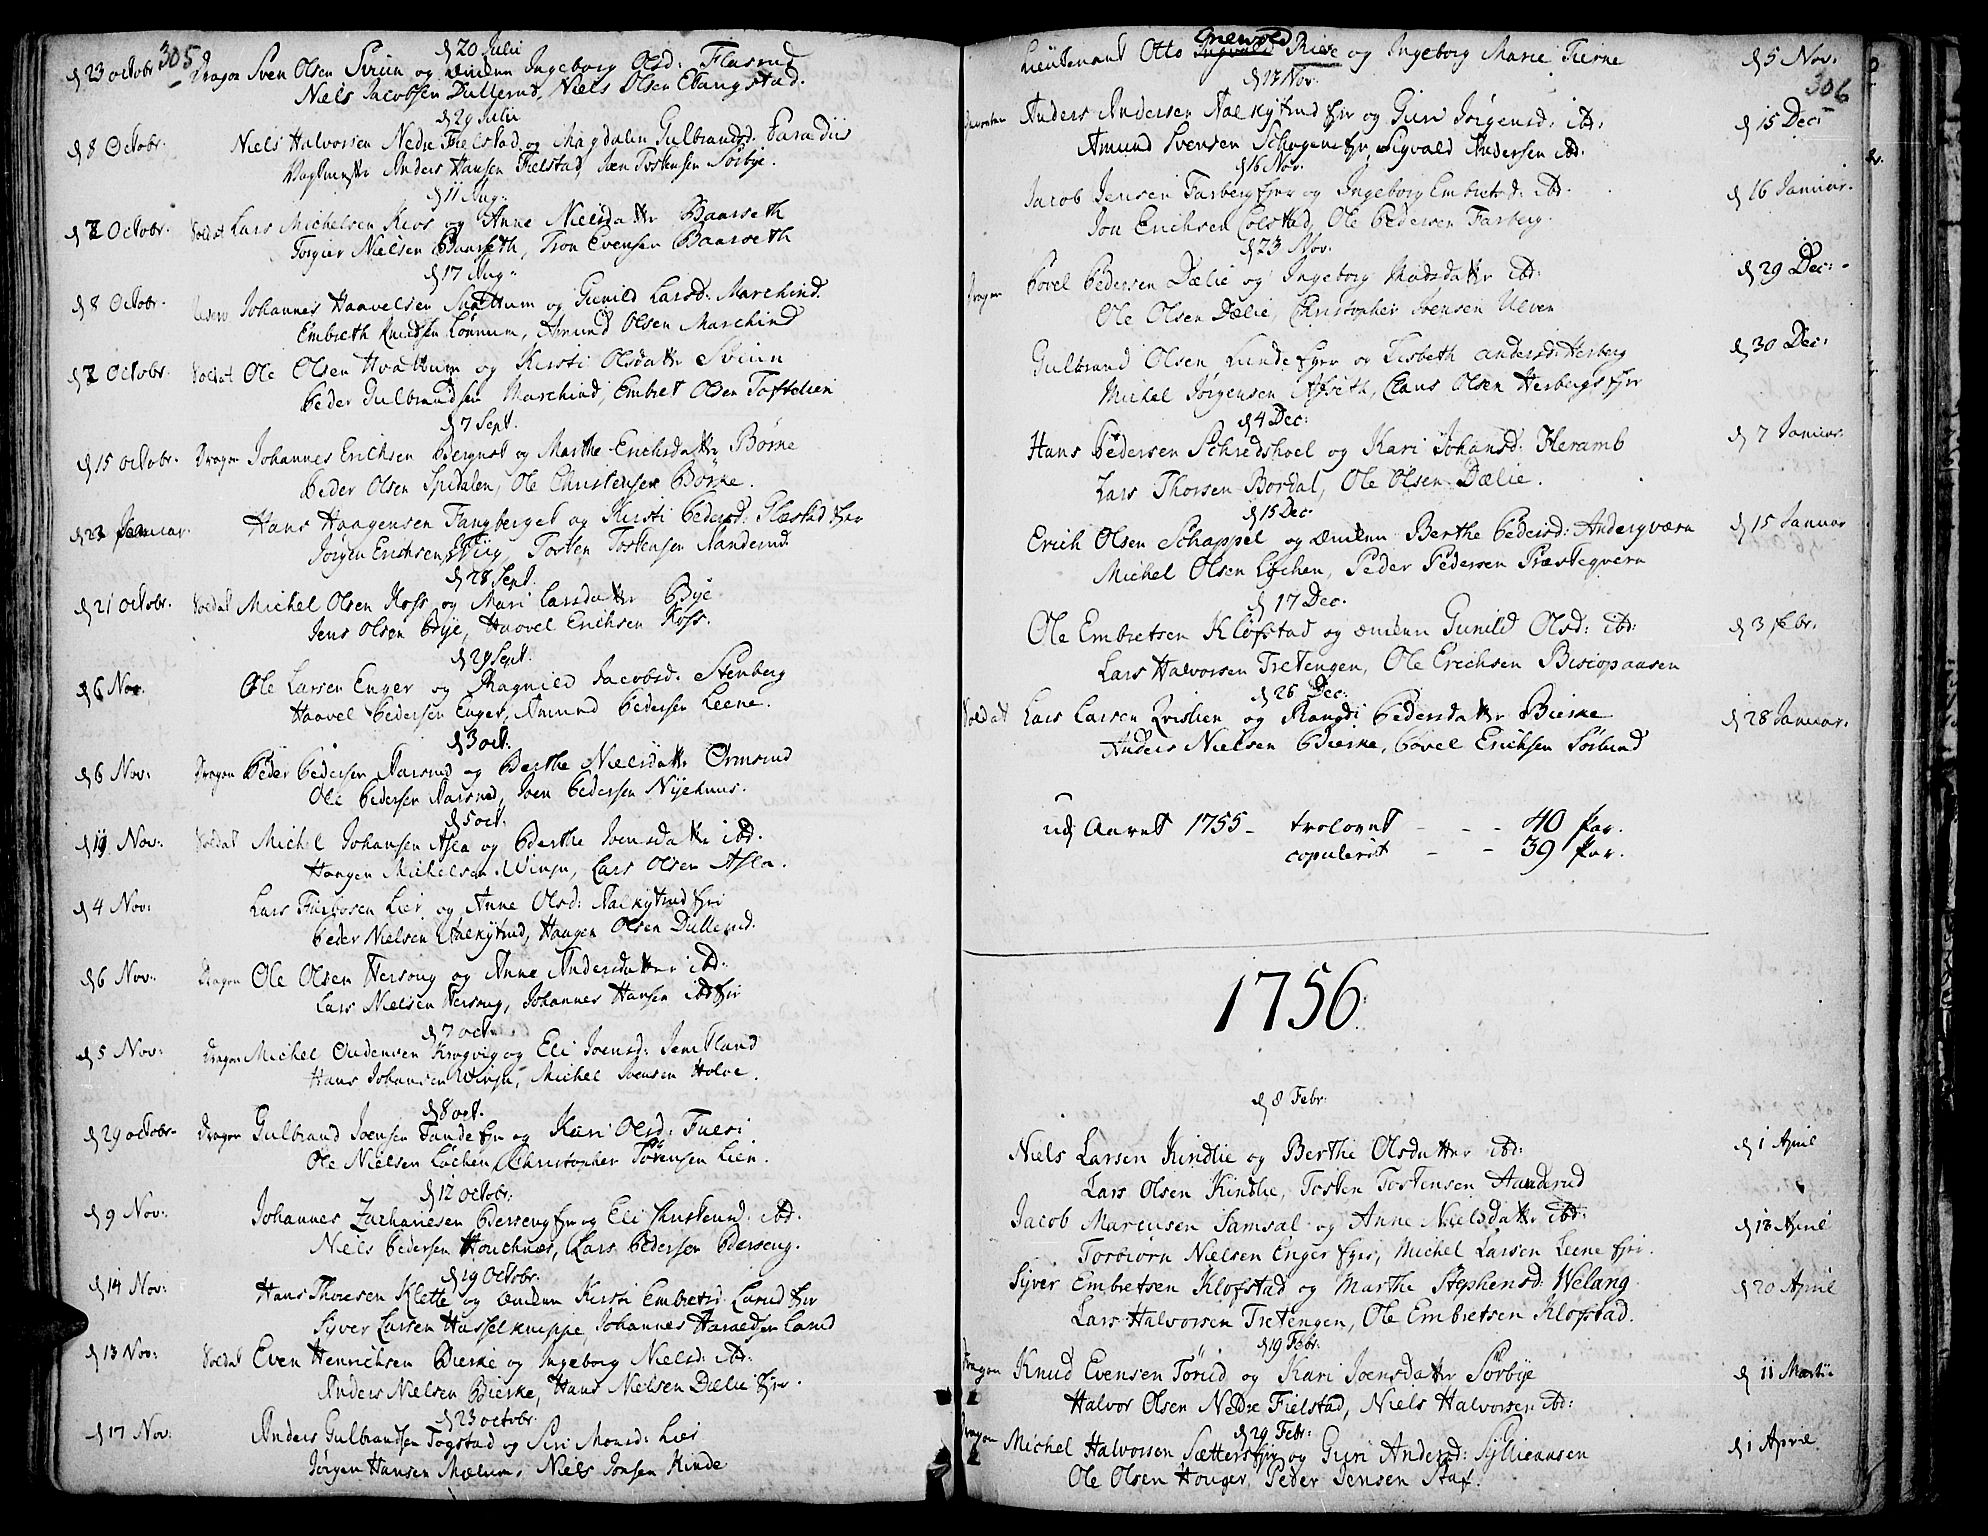 305
d 20 Julii
d 23 octobr Dragon Sven Olsen Sviun og Enken Ingeborg Olsd: Flasrud
Niels Jacobsen Dullerud, Niels Olsen Ebangstad.
d 29 Julii
d 8 Octobr. Niels Halvorsen Nedre Fielstad og Magdalen Gulbrandsd. Paradiis
Anders Hansen Fielstad, Jven Tostensen Sørbye.
d 11 Aug:
d 2 Octobr. Soldat Lars Michelsen Kios og Anne Nielsdatter Baarseth
Torgier Nielsen Baarseth, Tron Evensen Baarseth
d 17 Aug
d 8 Octobr. Johannes Haavelsen Snattum og Gunild Larsd: Marchind.
Embreth Knudsen Lønnum, Amund Olsen Marchind
d 2 Octobr. Soldat Ole Olsen Hvattum og Kirsti Olsdatter Sviun
Peder Gulbrandsen Marchind, Embret Olsen Toftelien
d 7 Sept.
d 15 octobr. Dragon Johannes Erichsen Bergust og Marthe Erichsdatter Børne
Peder Olsen Spitalen, Ole Christensen Børke.
d 22 Januar. Hans Haagensen Fangberget og Kirsti Pedersd: Glæstad
Jørgen Erichsen Tiig, Tosten Tostensen Aanderud
d 28 Sept.
d 21 octobr. Soldat Michel Olsen Koss og Mari Larsdatter Bye
Jens Olsen Bye, Haavel Erichsen Koss.
d 29 Sept.
d 6 Nov: Ole Larsen Enger og Ragnild Jacobsd: Stenberg
Haavel Pedersen Enger, Amund Pedersen Leene.
d 3 oct:
d 6 Nov: Dragon Peder Pedersen Aarsrud og Berthe Nielsdatter Ormsrud
Ole Pedersen Aarsrud, Iven Pedersen Nyehuus.
d 5 oct:
d 19 Nov: Soldat Michel Johansen Asla og Berthe Joensdatter ibd.
Haagen Michelsen Winju, Lars Olsen Asla.
d 4 Nov: Lars Lier og Anne Olsd: Aalkytrud
Peder Nielsen Aalkytrud, Haagen Olsen Dullerud.
d 6 Nov: Dragon Ole Olsen Hersoug og Anne Andersdatter ibd:
Lars Nielsen Hersoug, Johannes Hansen ibd
d 7 oct
d 5 Nov: Dragon Michel Oudensen Krogvig og Eli Joensd: Jemtland
Hans Johansen Winju, Michel Svensen Holve.
d 8 oct.
d 29 octobr. Dragon Gulbrand Joensen Tande og Kari Olsd: Fuesi
Ole Nielsen Løchen, Christopher Torensen Lien.
d 12 octobr:
d 9 Nov: Johannes Zachariesen Berseng og Eli ibd.
Niels Pedersen Houchnæs, Lars Pedersen Berseng.
d 19 Octobr:
d 14 Nov: Hans Thoresen Klette og Enken Kirsti Embretsd. Larud
Syver Larsen Hasselknippe, Johannes Haraldsen Land
d 13 Nov: Soldat Even Henrichsen Bierke og Ingeborg Nielsd: ibd:
Anders Nielsen Bierke, Hans Nielsen Dælie
d 23 octobr:
d 17 Nov: Anders Gulbrandsen Togstad og Siri Monsd: Lier
Jørgen Hansen Mælum, Niels Jonsen Kinde
306
Grewold
Lieutenant Otto Ingvald Riese og Ingeborg Marie Fierne d 5 Nov:
d 17 Nov:
Anders Andersen Aalkytrud og Guri Jørgensd: ibd: d 15 Dec:
Amund Svensen, Sigvald Andersen ibd:
d 16 Nov:
Jacob Jensen Farberg og Ingeborg Embretsd: ibd. d 16 Januar.
Jon Erichsen Colsted, Ole Pedersen Farberg.
d 23 Nov:
Dragon Povel Pedersen Dælie og Ingeborg Madsdatter ibd: d 29 Dec:
Ole Olsen Dælie, Christopher Svensen Ulven
Gulbrand Olsen Lunde og Lisbeth Andersd: Herberg d 30 Dec:
Michel Jørgensen Opseth, Claus Olsen Herbergs
d 4 Dec:
Hans Pedersen Schredshoel og Kari Johansd: Heramb d 7 Januar.
Lars Thorsen Bordal, Ole Olsen Dælie.
d 15 Dec:
Erich Olsen Schappel og Enken Berthe Pedersd: Andergværn d 15 Januar
Michel Olsen Løchen, Peder Pedersen Præsteqvern
d 17 Dec.
Ole Embretsen Kløfstad og Enken Gunild Olsd: ibd: d 3 febr.
Lars Halvorsen Tretengen, Ole Erichsen Biscopaasen
d 26 Dec:
Soldat Lars Larsen Qvislien og Rangdi Pedersdatter Bierke d 28 Januar.
Anders Nielsen Bierke, Povel Erichsen Sørlund
udj Aaret 1755 - trolovet - - - 40 Par.
copulerit - - 39 Par.
1756:
d 8 Febr:
Niels Larsen Kindlie og Berthe Olsdatter ibd: d 1 April
Lars Olsen Kindlie, Tosten Tostensen Aanderud
Jacob Marcusen Samsal og Anne Nielsdatter ibd: d 13 April
Torbiørn Nielsen Enger, Michel Larsen Leene
Syver Embretsen Klofstad og Marthe Stephensd: Welang d 20 April
Lars Halvorsen Tretengen, Ole Embretsen Klofstad.
d 19 Febr:
Dragon Knud Evensen Torud og Kari Joensdatter Sørbye d 11 Marti
Halvor Olsen Nedre Fielstad, Niels Halvorsen ibd:
d 29 Febr:
Dragon Michel Halvorsen Sætters og Guri Andersd: Syllieaasen d 1 April
Ole Olsen Houger, Peder Jensen Staf.